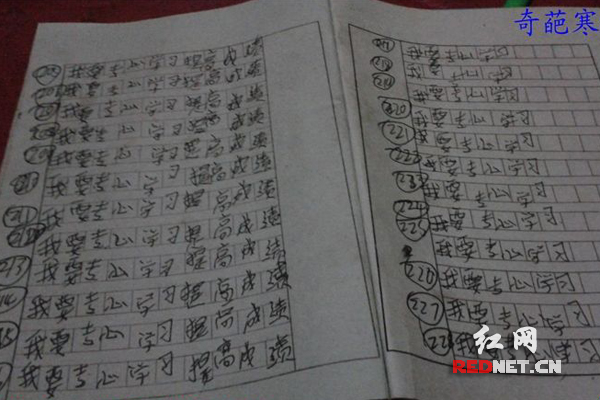 奇葩寒
我要专心学习提高成绩
我要专心学习提高成绩
我要专心学习提高成绩
我要专心学习提高成绩
我要专心学习提高成绩
我要专心学习提高成绩
211 我要专心学习提高成绩
212 我要专心学习提高成绩
213 我要专心学习提高成绩
我要专心学习提高成绩
我要专心学习提高成绩
我要专心学习提高成绩
我要专心学习
我要专心学习
我要专心学习
220 我要专心学习
221 我要专心学习
222 我要专心学习
223 我要专心学习
224 我要专心学习
225 我要专心学习
226 我要专心学习
227 我要专心学习
我要专心学习
红网
REDNET.CN